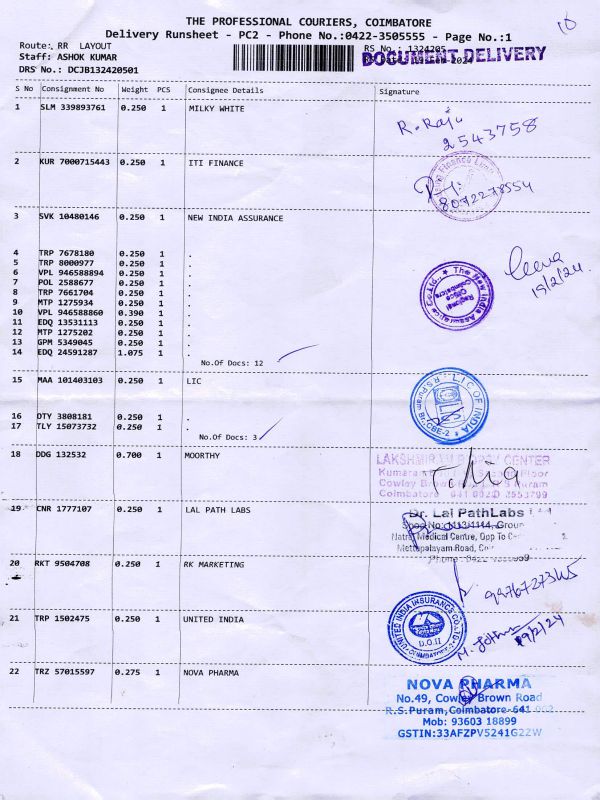 THE PROFESSIONAL COURIERS, COIMBATORE
Delivery Runsheet - PC2 - Phone No.:0422-3505555 - Page No.:1
Route: RR LAYOUT
RS No.: 1324205
Staff: ASHOK KUMAR
DOCUMENT DELIVERY
DRS No.: DCJB132420501
S No Consignment No Weight PCS Consignee Details Signature
1 SLM 339893761 0.250 1 MILKY WHITE
R. Raju
2543758
2 KUR 7000715443 0.250 1 ITI FINANCE
8072278554
3 SVK 10480146 0.250 1 NEW INDIA ASSURANCE
4 TRP 7678180 0.250 1 .
5 TRP 8000977 0.250 1 .
6 VPL 946588894 0.250 1 .
7 POL 2588677 0.250 1 .
8 TRP 7661704 0.250 1 .
9 MTP 1275934 0.250 1 .
10 VPL 946588860 0.390 1 .
11 EDQ 13531113 0.250 1 .
12 MTP 1275202 0.250 1 .
13 GPM 5349045 0.250 1 .
14 EDQ 24591287 1.075 1 .
No.Of Docs: 12
The New India Assurance Co.
Regional Office
Coimbatore
19/2/24
15 MAA 101403103 0.250 1 LIC
16 DTY 3808181 0.250 1 .
17 TLY 15073732 0.250 1 .
No.Of Docs: 3
L I C OF INDIA
R.S.Puram Br. CBE-2
18 DDG 132532 0.700 1 MOORTHY
LAKSHMIRAM CENTER
Floor
Cowley Brown R S Puram
Coimbatore 641 002
19 CNR 1777107 0.250 1 LAL PATH LABS
Dr. Lal PathLabs
Shop No: Groun
Natraj Medical Centre, Opp To
Mettupalayam Road,
Phone: 0422
20 RKT 9504708 0.250 1 RK MARKETING
21 TRP 1502475 0.250 1 UNITED INDIA
UNITED INDIA INSURANCE CO. LTD
D.O.II
COIMBATORE
19/2/24
22 TRZ 57015597 0.275 1 NOVA PHARMA
NOVA PHARMA
No.49, Cowley Brown Road
R.S.Puram, Coimbatore-641 002
Mob: 93603 18899
GSTIN:33AFZPV5241G2ZW